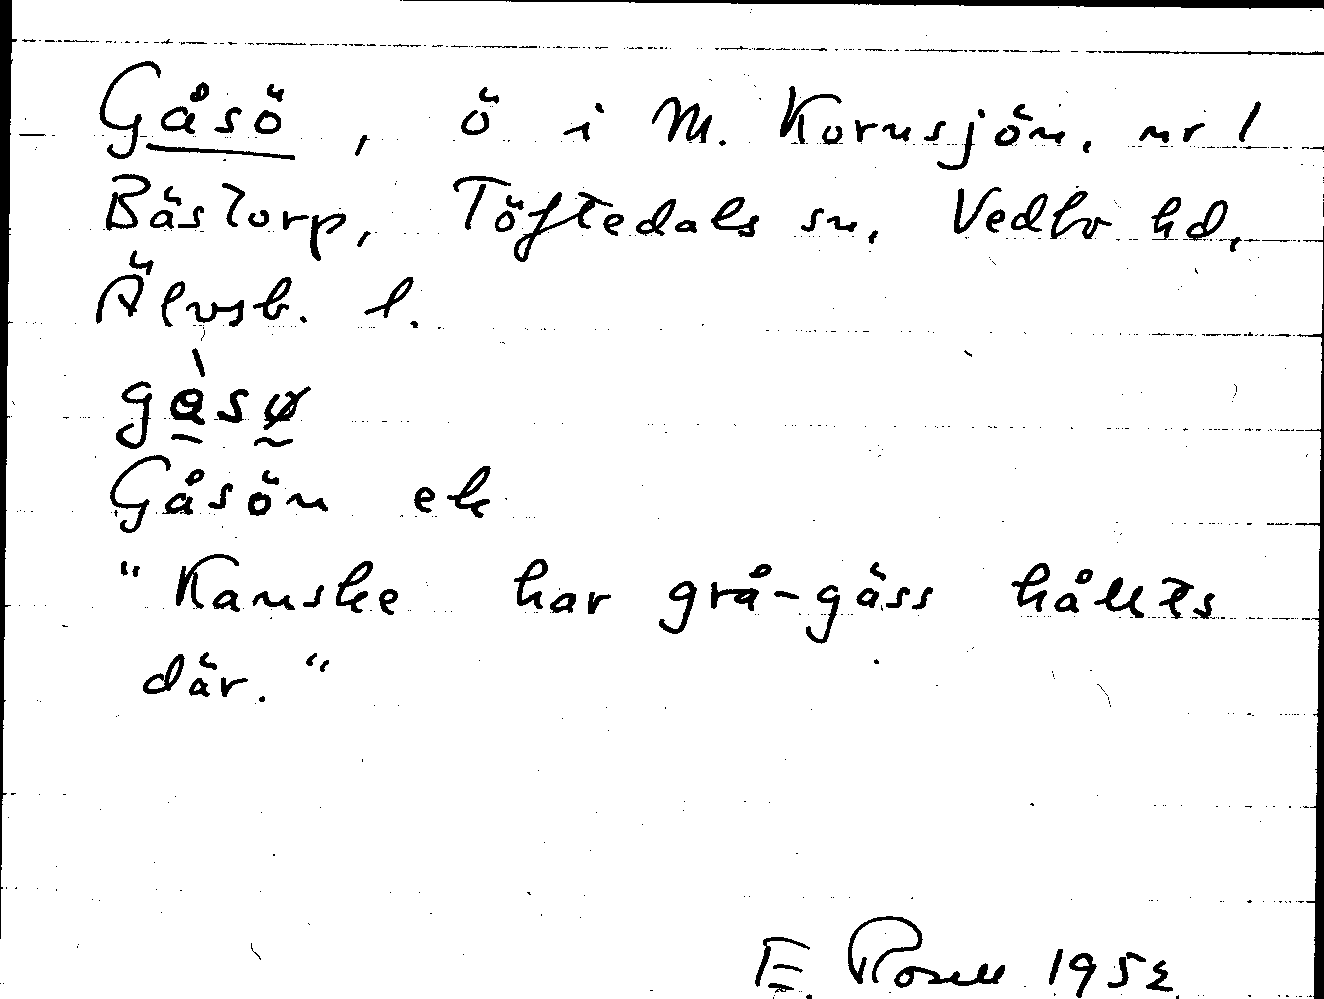 Gåsö, ö i M. Kornsjön, nr 1
Bästorp, Töftedals sn, Vedbo hd,
Älvsb. l.
gàsø
Gåsön ek
"Kanske har grå-gäss hållits
där."
E. Rosell 1952